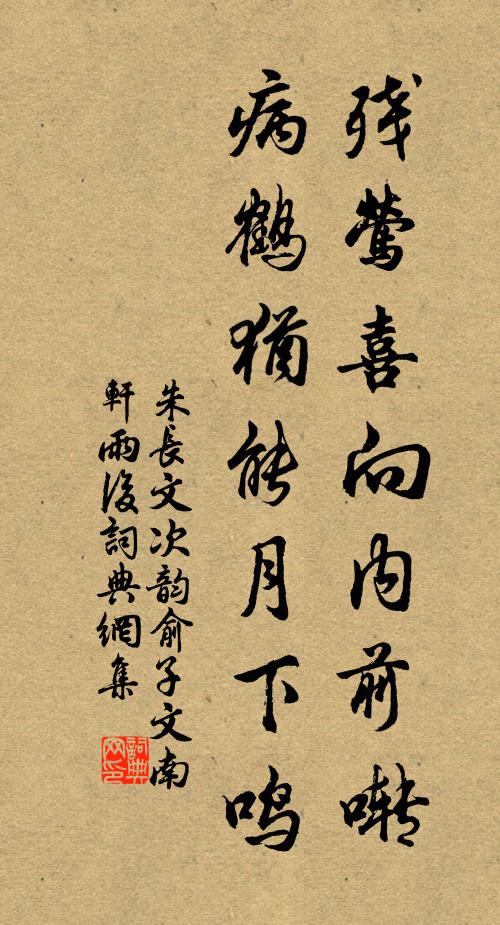 残鶯喜向内前啭
病鶴猶能月下鸣
朱長文次韵俞子文南
軒雨後詞典網集
詞典
网印